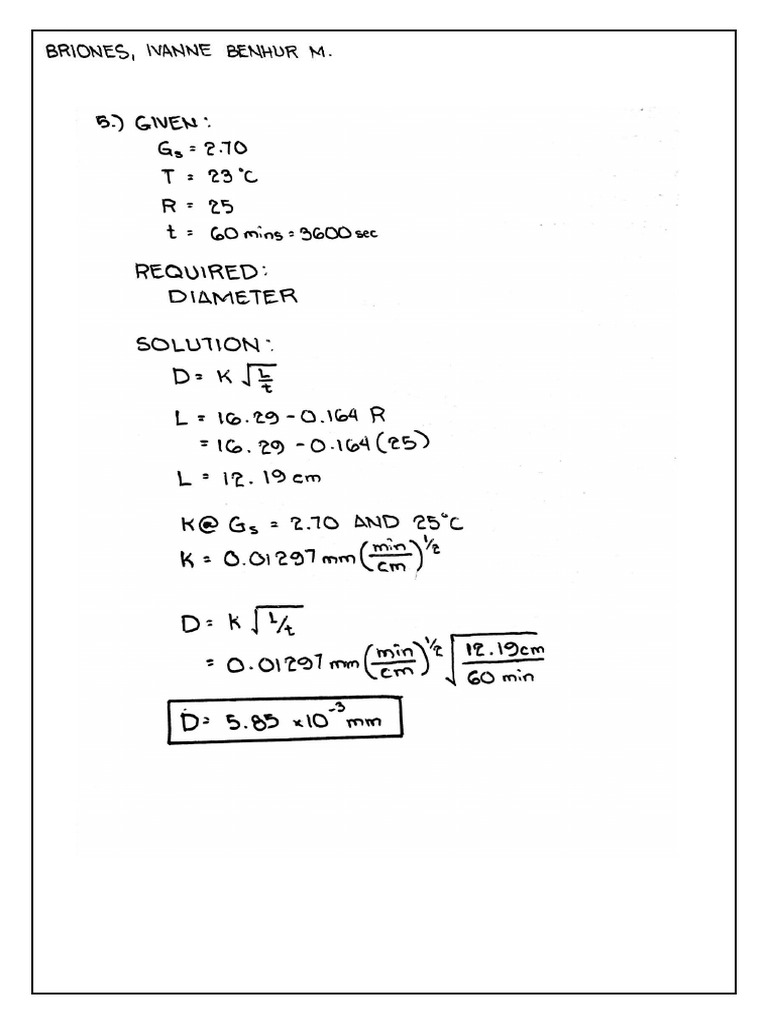 BRIONES, IVANNE BENHUR M.
5.) GIVEN:
Gs = 2.70
T = 23°C
R = 25
t = 60 mins = 3600 sec
REQUIRED:
DIAMETER
SOLUTION:
D = K √(L/t)
L = 16.29 - 0.164 R
= 16.29 - 0.164 (25)
L = 12.19 cm
K @ Gs = 2.70 AND 25°C
K = 0.01297 mm (min/cm)^1/2
D = K √(L/t)
= 0.01297 mm (min/cm)^1/2 √(12.19cm/60 min)
D = 5.85 x10^-3 mm